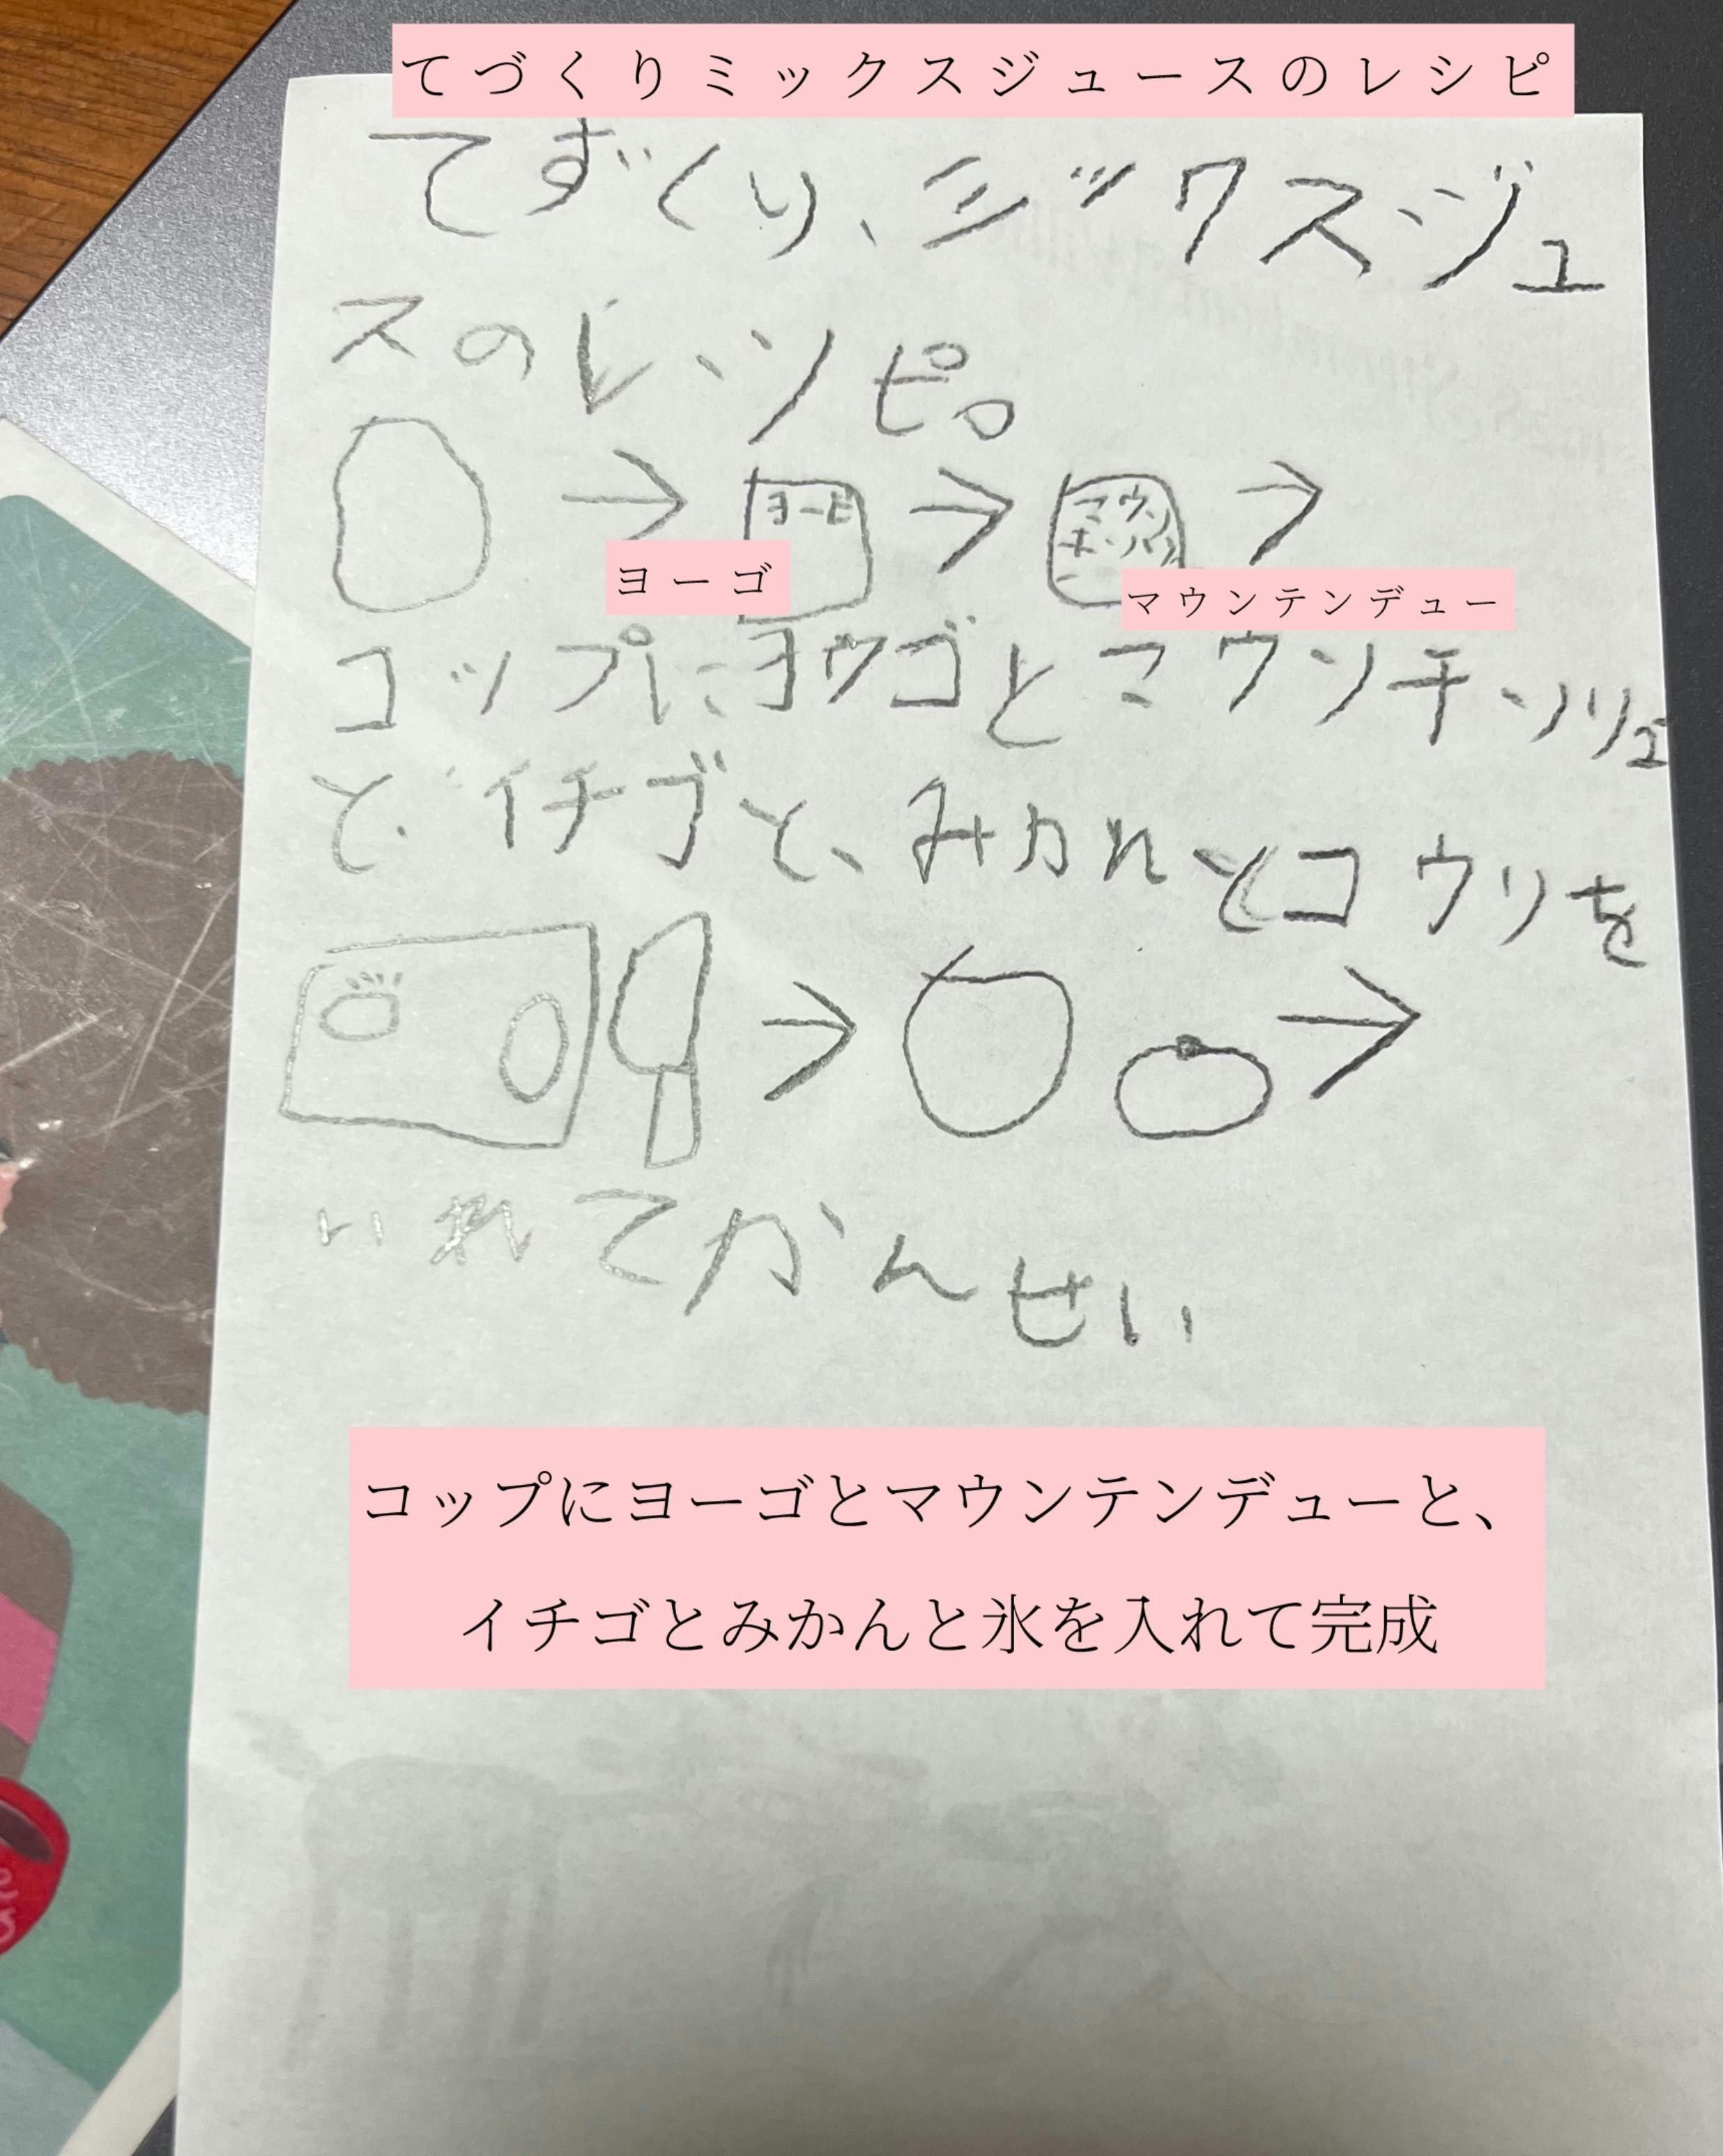 てづくりミックスジュースのレシピ
てずくり、ミックスジュ
スのレシピ。
ヨーゴ
マウンテンデュー
コップにヨウゴとマウンチンリュ
と、イチゴと、みかんとコウリを
いれてかんせい
コップにヨーゴとマウンテンデューと、
イチゴとみかんと氷を入れて完成